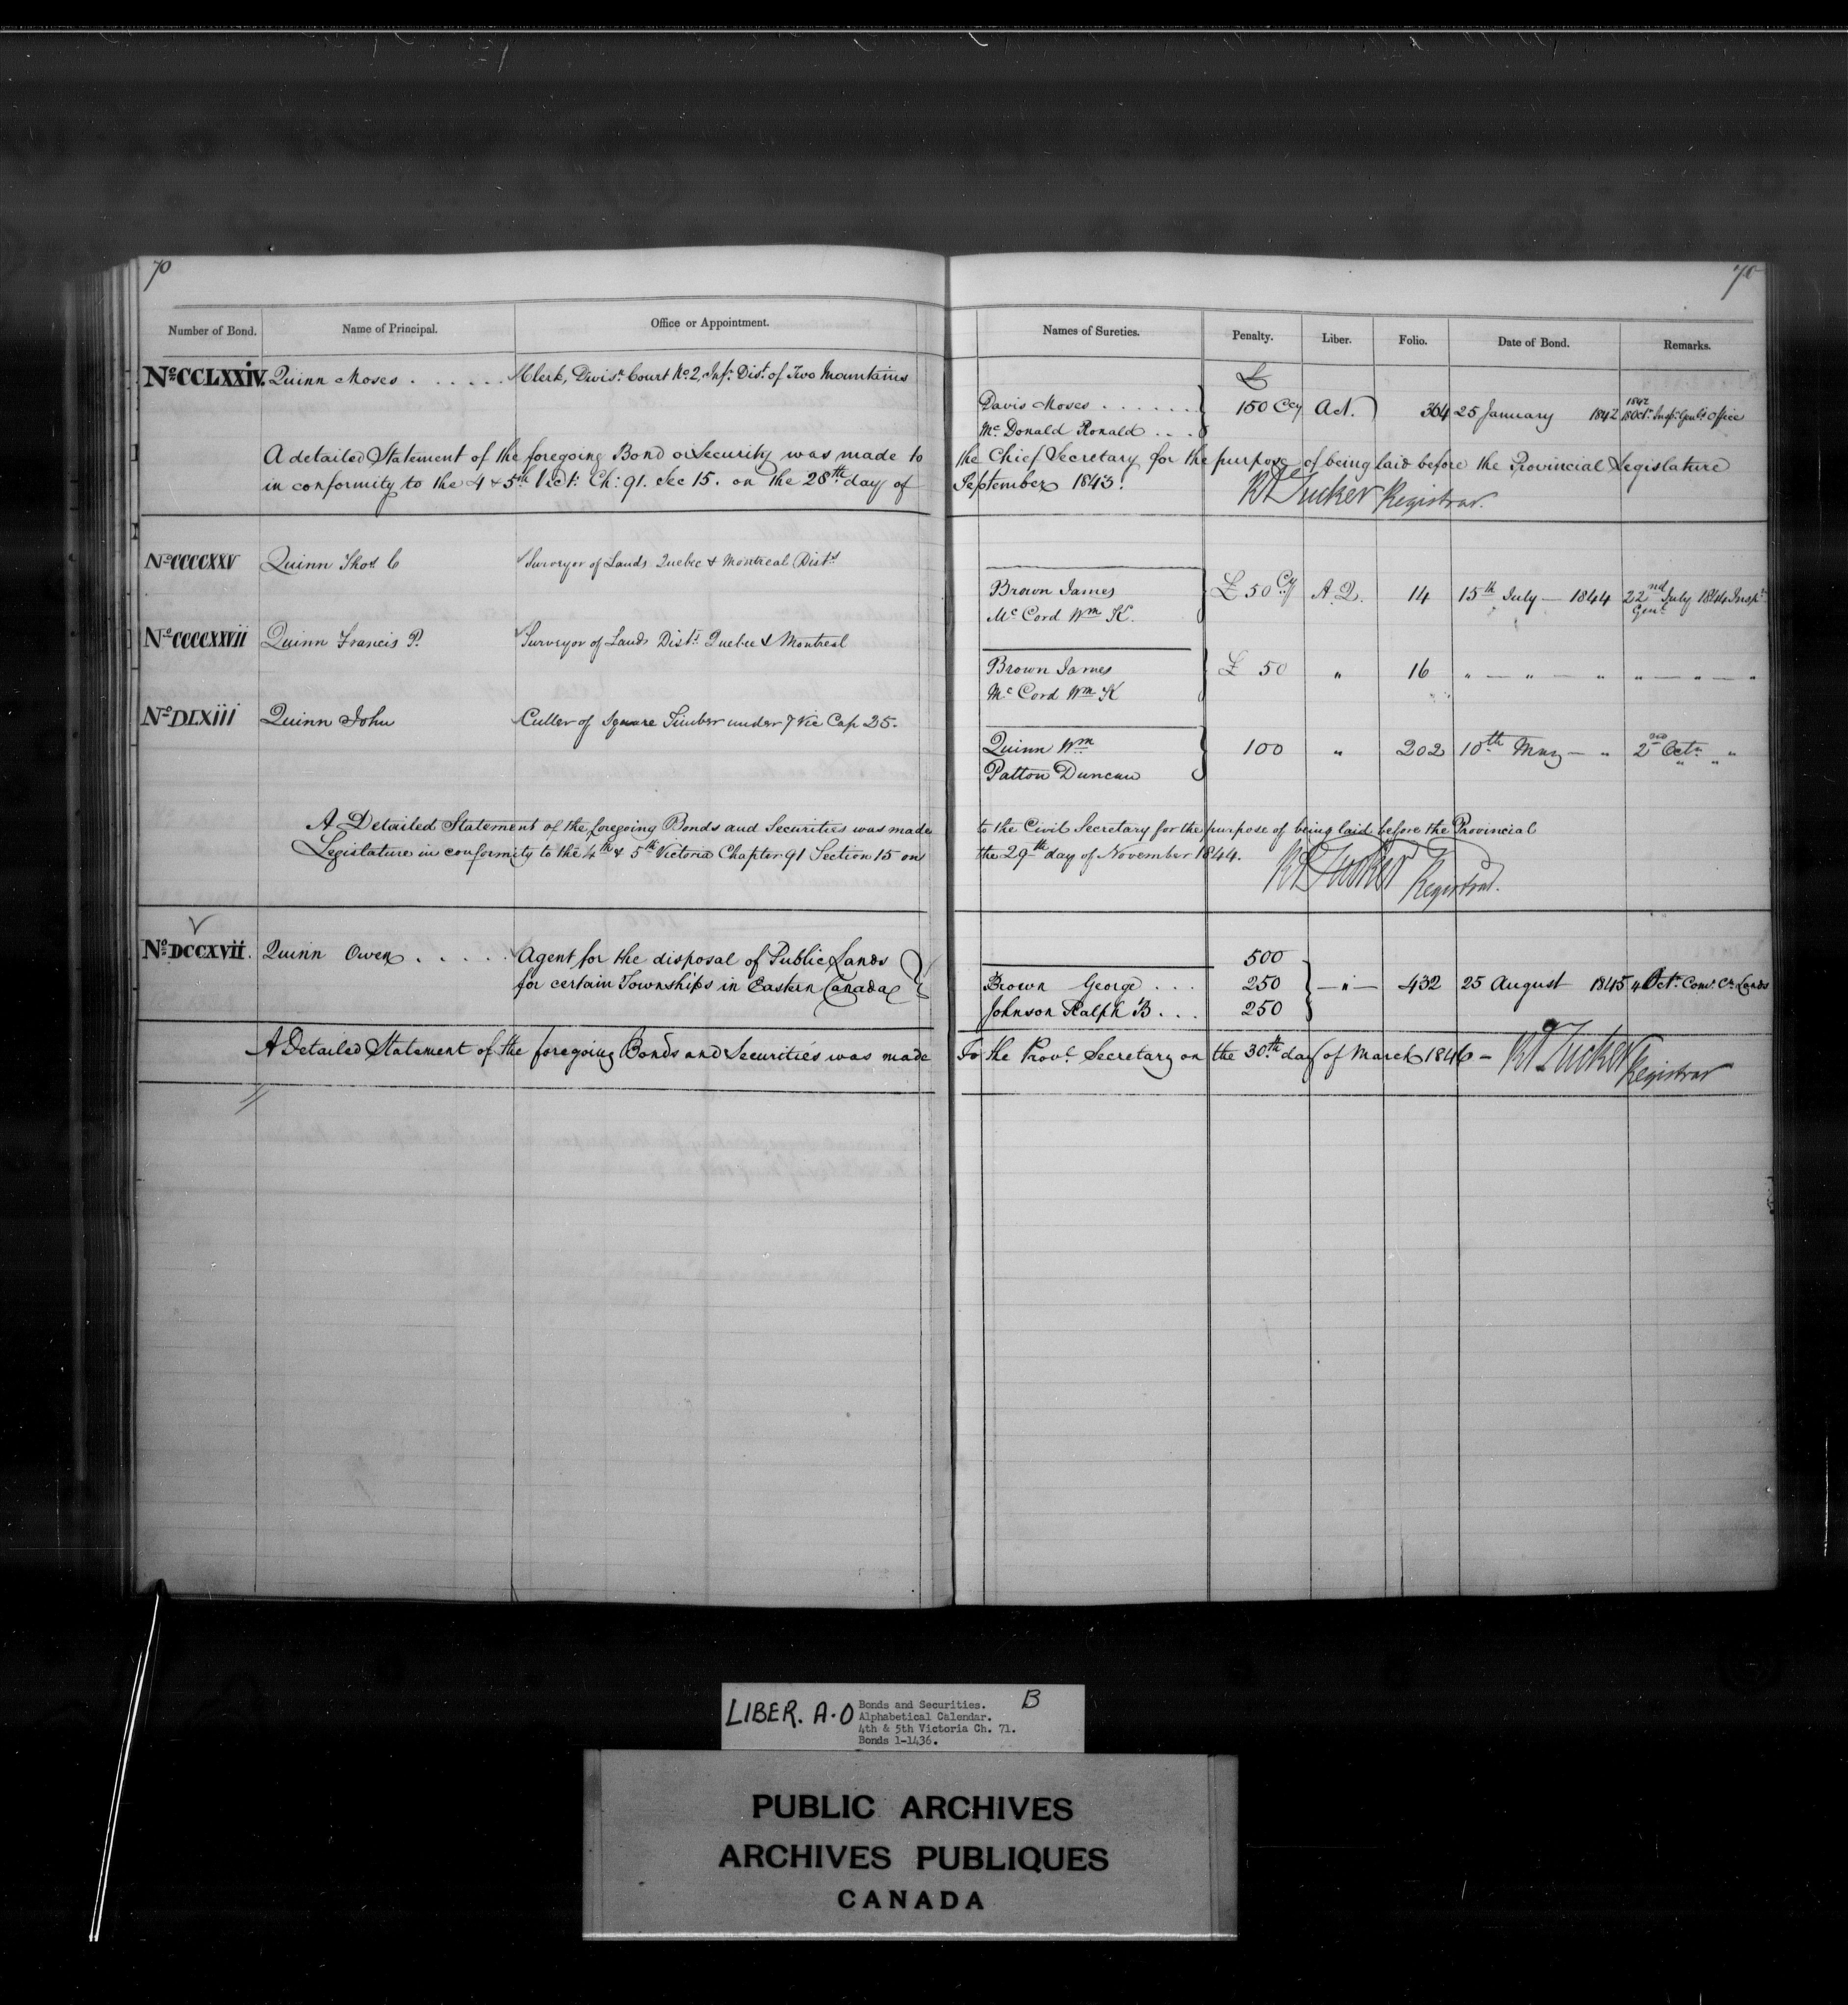 70
70
Number of Bond. Name of Principal. Office or Appointment. Names of Sureties. Penalty. Liber. Folio. Date of Bond. Remarks.
£
No CCLXXIV. Quinn Moses . . . . . . Clerk, Divisn Court No 2, Infr Dist. of Two Mountains
Davis Moses . . . . . . 150 Ccy Act. 364 25 January 1842 1842 18 Octr Inspr Genl's Office
Mc Donald Ronald . . .
A detailed Statement of the foregoing Bond or Security was made to the Chief Secretary for the purpose of being laid before the Provincial Legislature
in conformity to the 4 & 5th Vict: Ch: 91. Sec 15. on the 28th day of September 1843.
Tucker Registrar.
No CCCCXXV Quinn Thos C Surveyor of Lands Quebec & Montreal Dists
Brown James £ 50 Cy A.Q. 14 15th July — 1844 22nd July 1844 Inspr
Mc Cord Wm K. Genl
No CCCCXXVII Quinn Francis P. Surveyor of Lands Dists Quebec & Montreal
Brown James £ 50 " 16 " — " — " " — " — "
Mc Cord Wm K
No DLXIII Quinn John Culler of Square Timber under 7 Vic Cap 25.
Quinn Wm 100 " 202 10th May — " 2nd Octr " "
Patton Duncan
A Detailed Statement of the foregoing Bonds and Securities was made to the Civil Secretary for the purpose of being laid before the Provincial
Legislature in conformity to the 4th & 5th Victoria Chapter 91 Section 15 on the 29th day of November 1844.
Tucker Registrar.
No DCCXVII. Quinn Owen . . . . . Agent for the disposal of Public Lands
for certain Townships in Eastern Canada
500
Brown George . . . 250 — " — 432 25 August 1845 4 Octr Comr Cn Lands
Johnson Ralph B . . . 250
A Detailed Statement of the foregoing Bonds and Securities was made To the Provl Secretary on the 30th day of March 1846 —
Tucker Registrar
LIBER. A.O
Bonds and Securities.
Alphabetical Calendar.
4th & 5th Victoria Ch. 71.
Bonds 1-1436.
B
PUBLIC ARCHIVES
ARCHIVES PUBLIQUES
CANADA